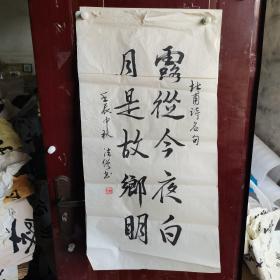 杜甫诗名句
露從今夜白
月是故鄉明